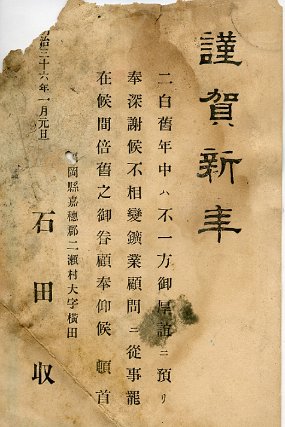 謹賀新年
二白舊年中ハ不一方御厚誼ニ預リ
奉深謝候不相變鑛業顧問ニ從事罷
在候間倍舊之御眷顧奉仰候 頓首
明治三十六年一月元旦
岡縣嘉穗郡二瀬村大字橫田
石田收